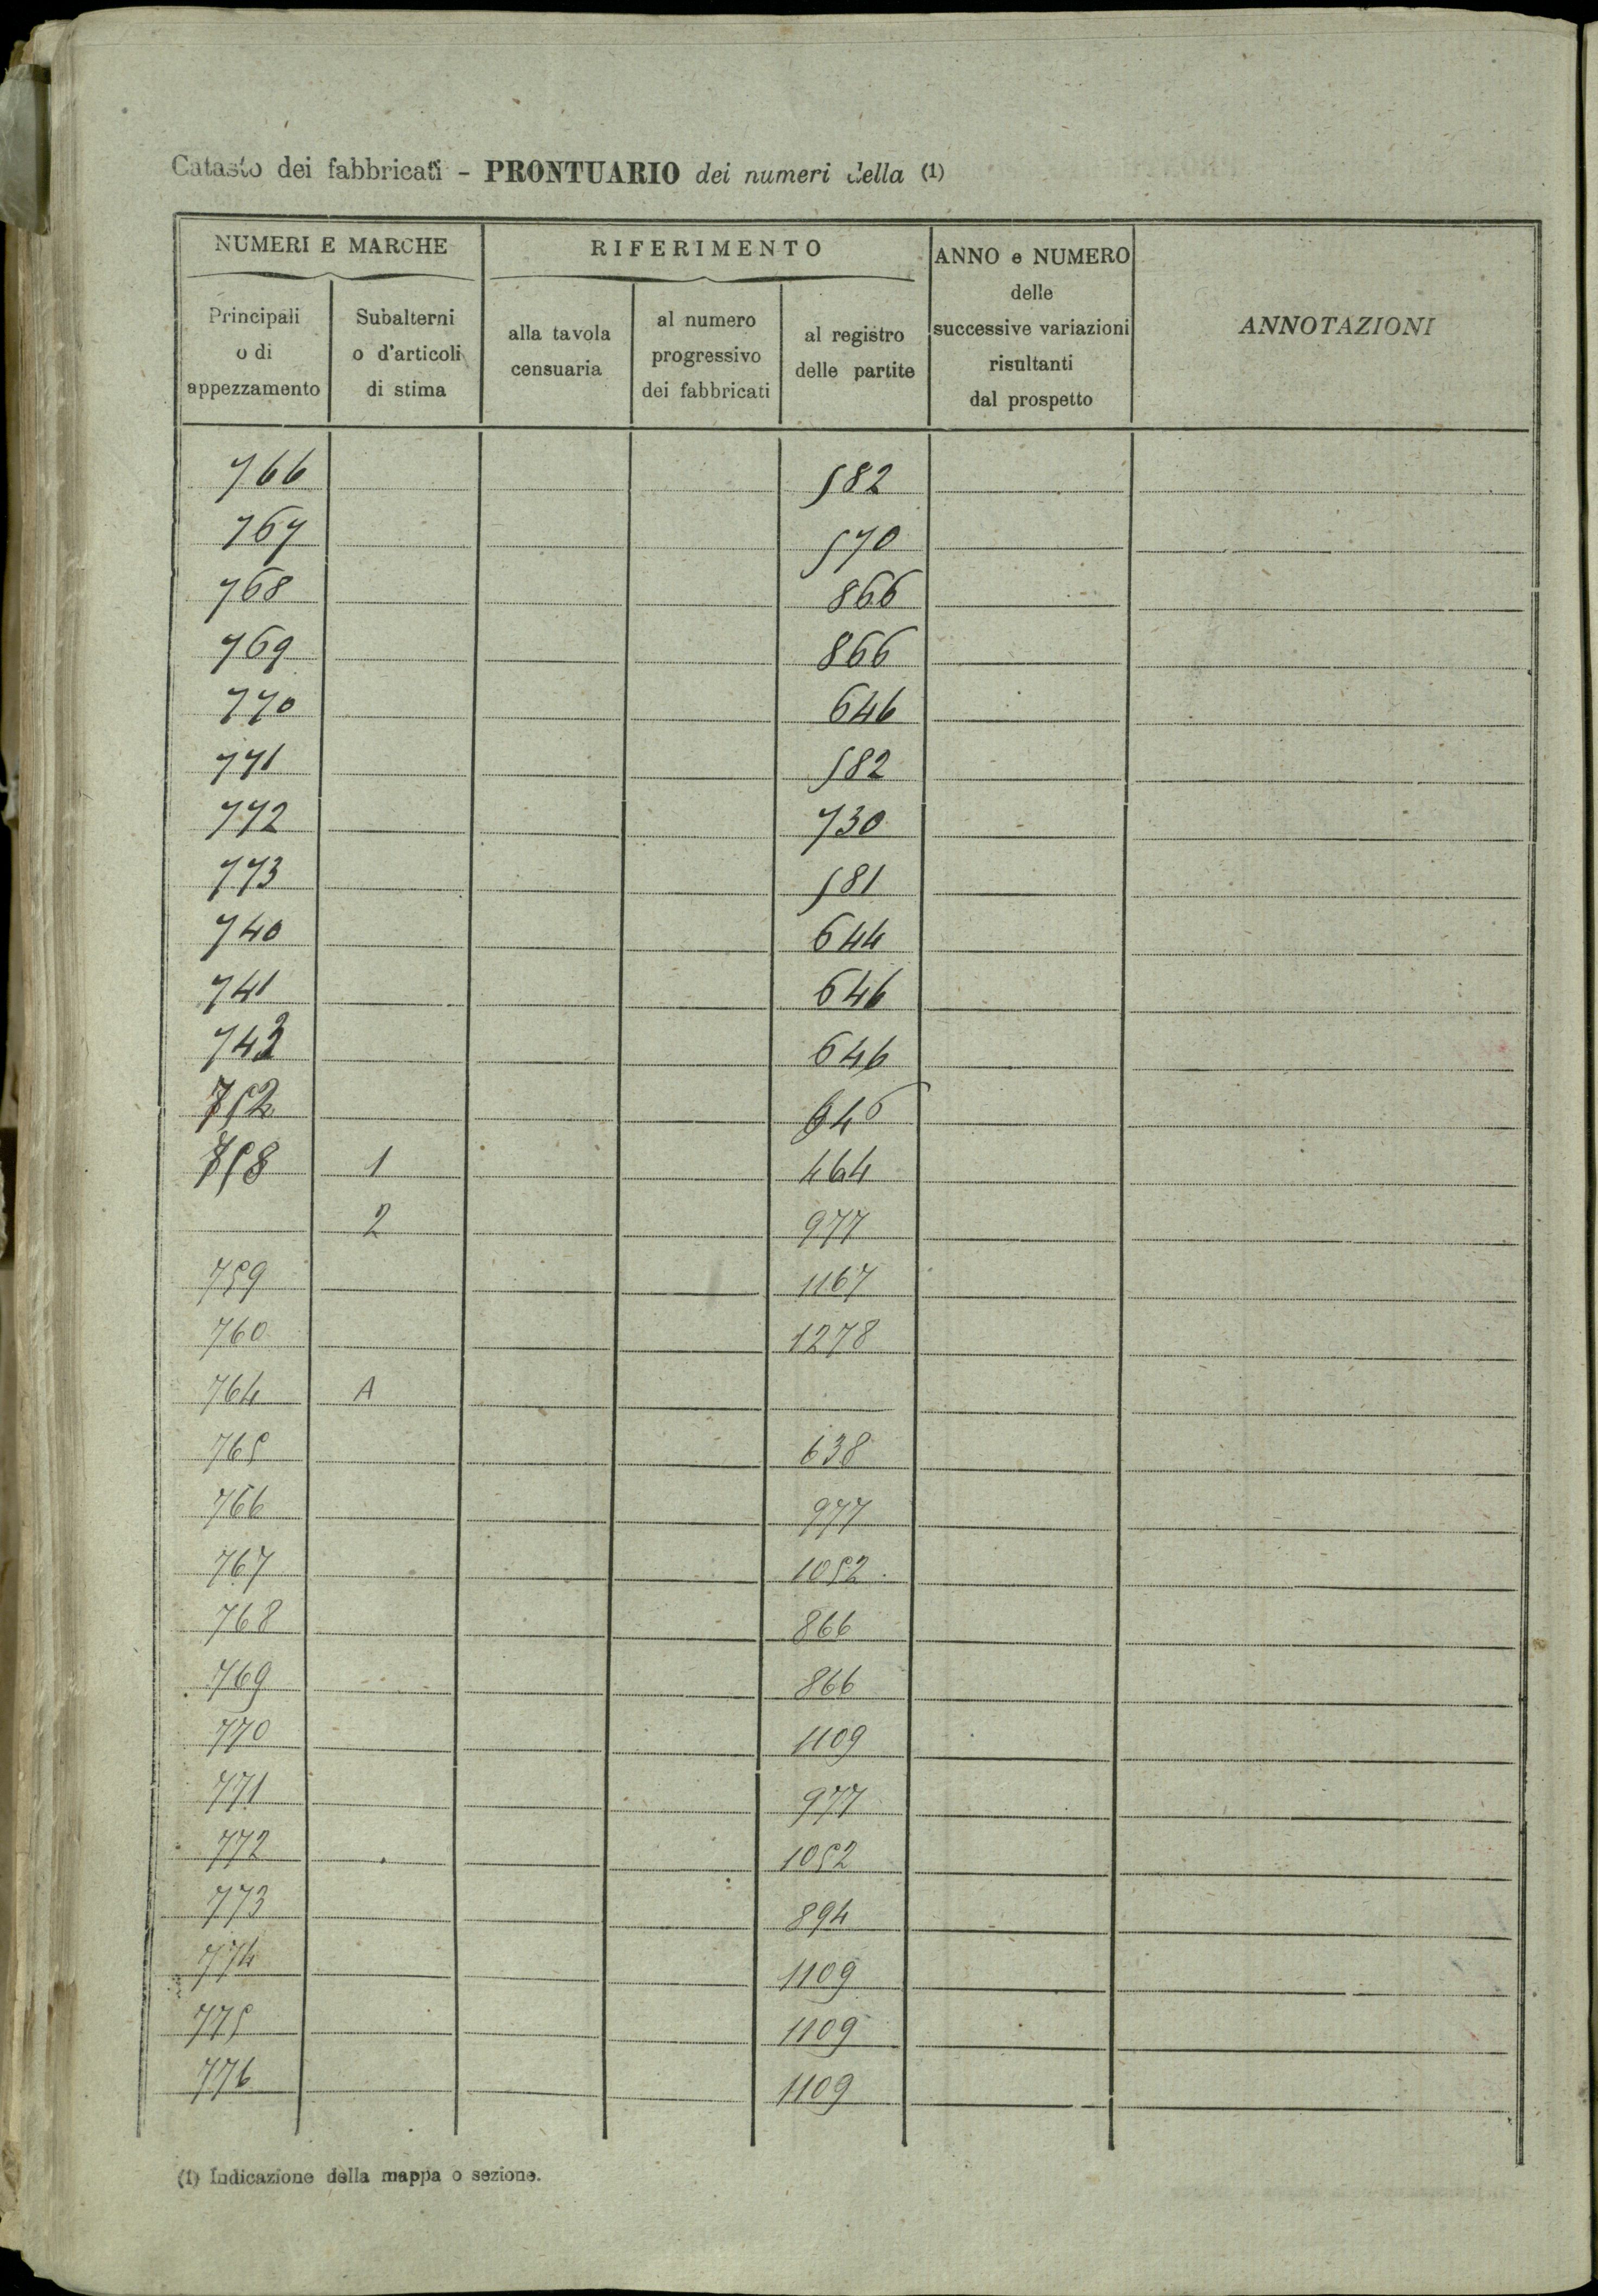 Catasto dei fabbricati - PRONTUARIO dei numeri della (1)
NUMERI E MARCHE
RIFERIMENTO
ANNO e NUMERO
delle
successive variazioni
risultanti
dal prospetto
ANNOTAZIONI
Principali
o di
appezzamento
Subalterni
o d'articoli
di stima
alla tavola
censuaria
al numero
progressivo
dei fabbricati
al registro
delle partite
766 582
767 570
768 866
769 866
770 646
771 582
772 730
773 581
740 644
741 646
743 646
752 646
758 1 464
2 977
759 1167
760 1278
764 A
765 638
766 977
767 1052
768 866
769 866
770 1109
771 977
772 1052
773 894
774 1109
775 1109
776 1109
(1) Indicazione della mappa o sezione.